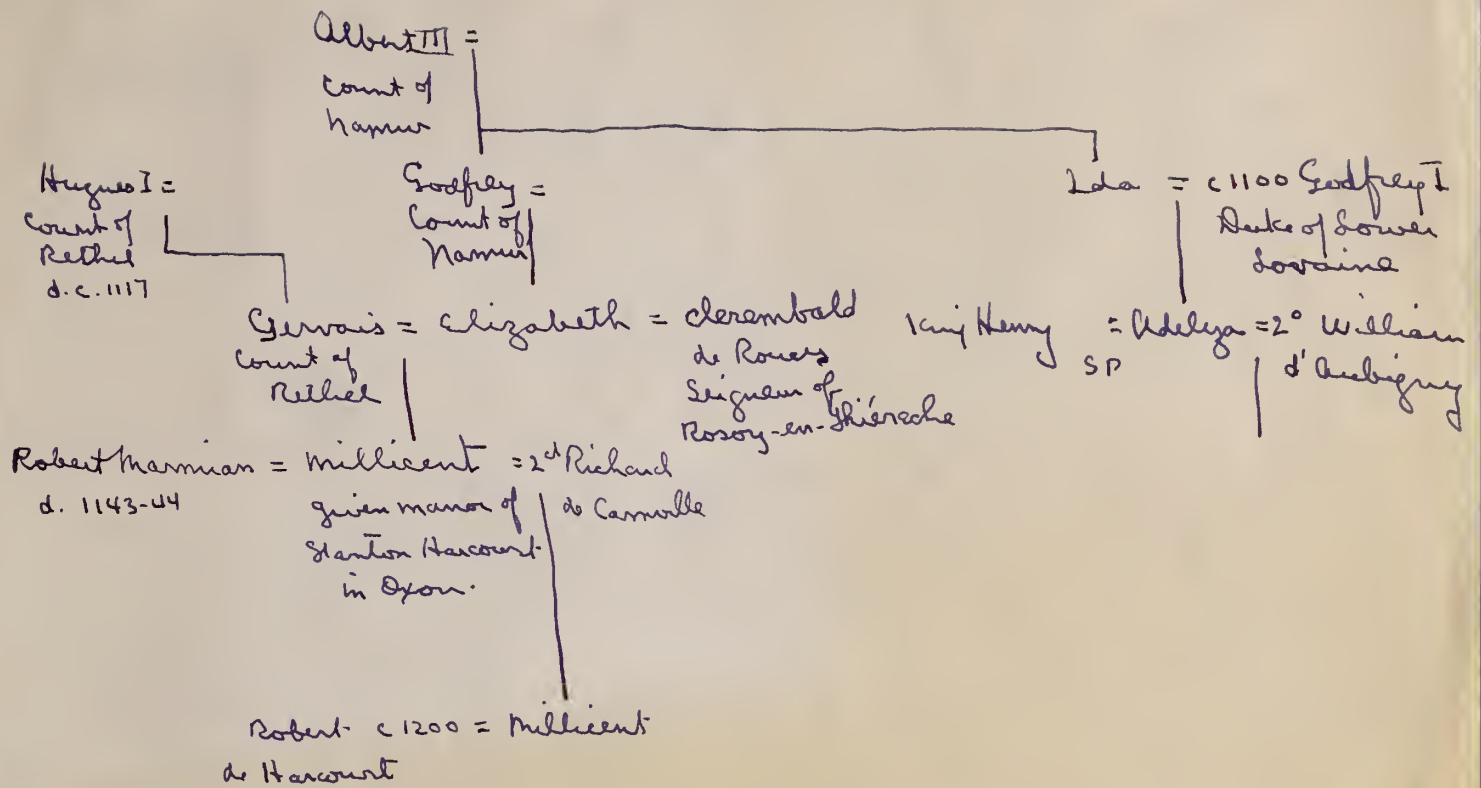 Albert III =
Count of
Namur
Hugues I =
Count of
Rethel
d.c. 1117
Godfrey =
Count of
Namur
Ida = c 1100 Godfrey I
Duke of Lower
Lorraine
Gervais = Elizabeth = Clerembald
Count of
Rethel
de
Seigneur of
Rosoy-en-Thiérache
King Henry = Adeliza = 2° William
SP
d'Aubigny
Robert Marmian = Millicent = 2d Richard
d. 1143-44
given manor of
Stanton Harcourt
in Oxon.
de Camville
Robert c 1200 = Millicent
de Harcourt